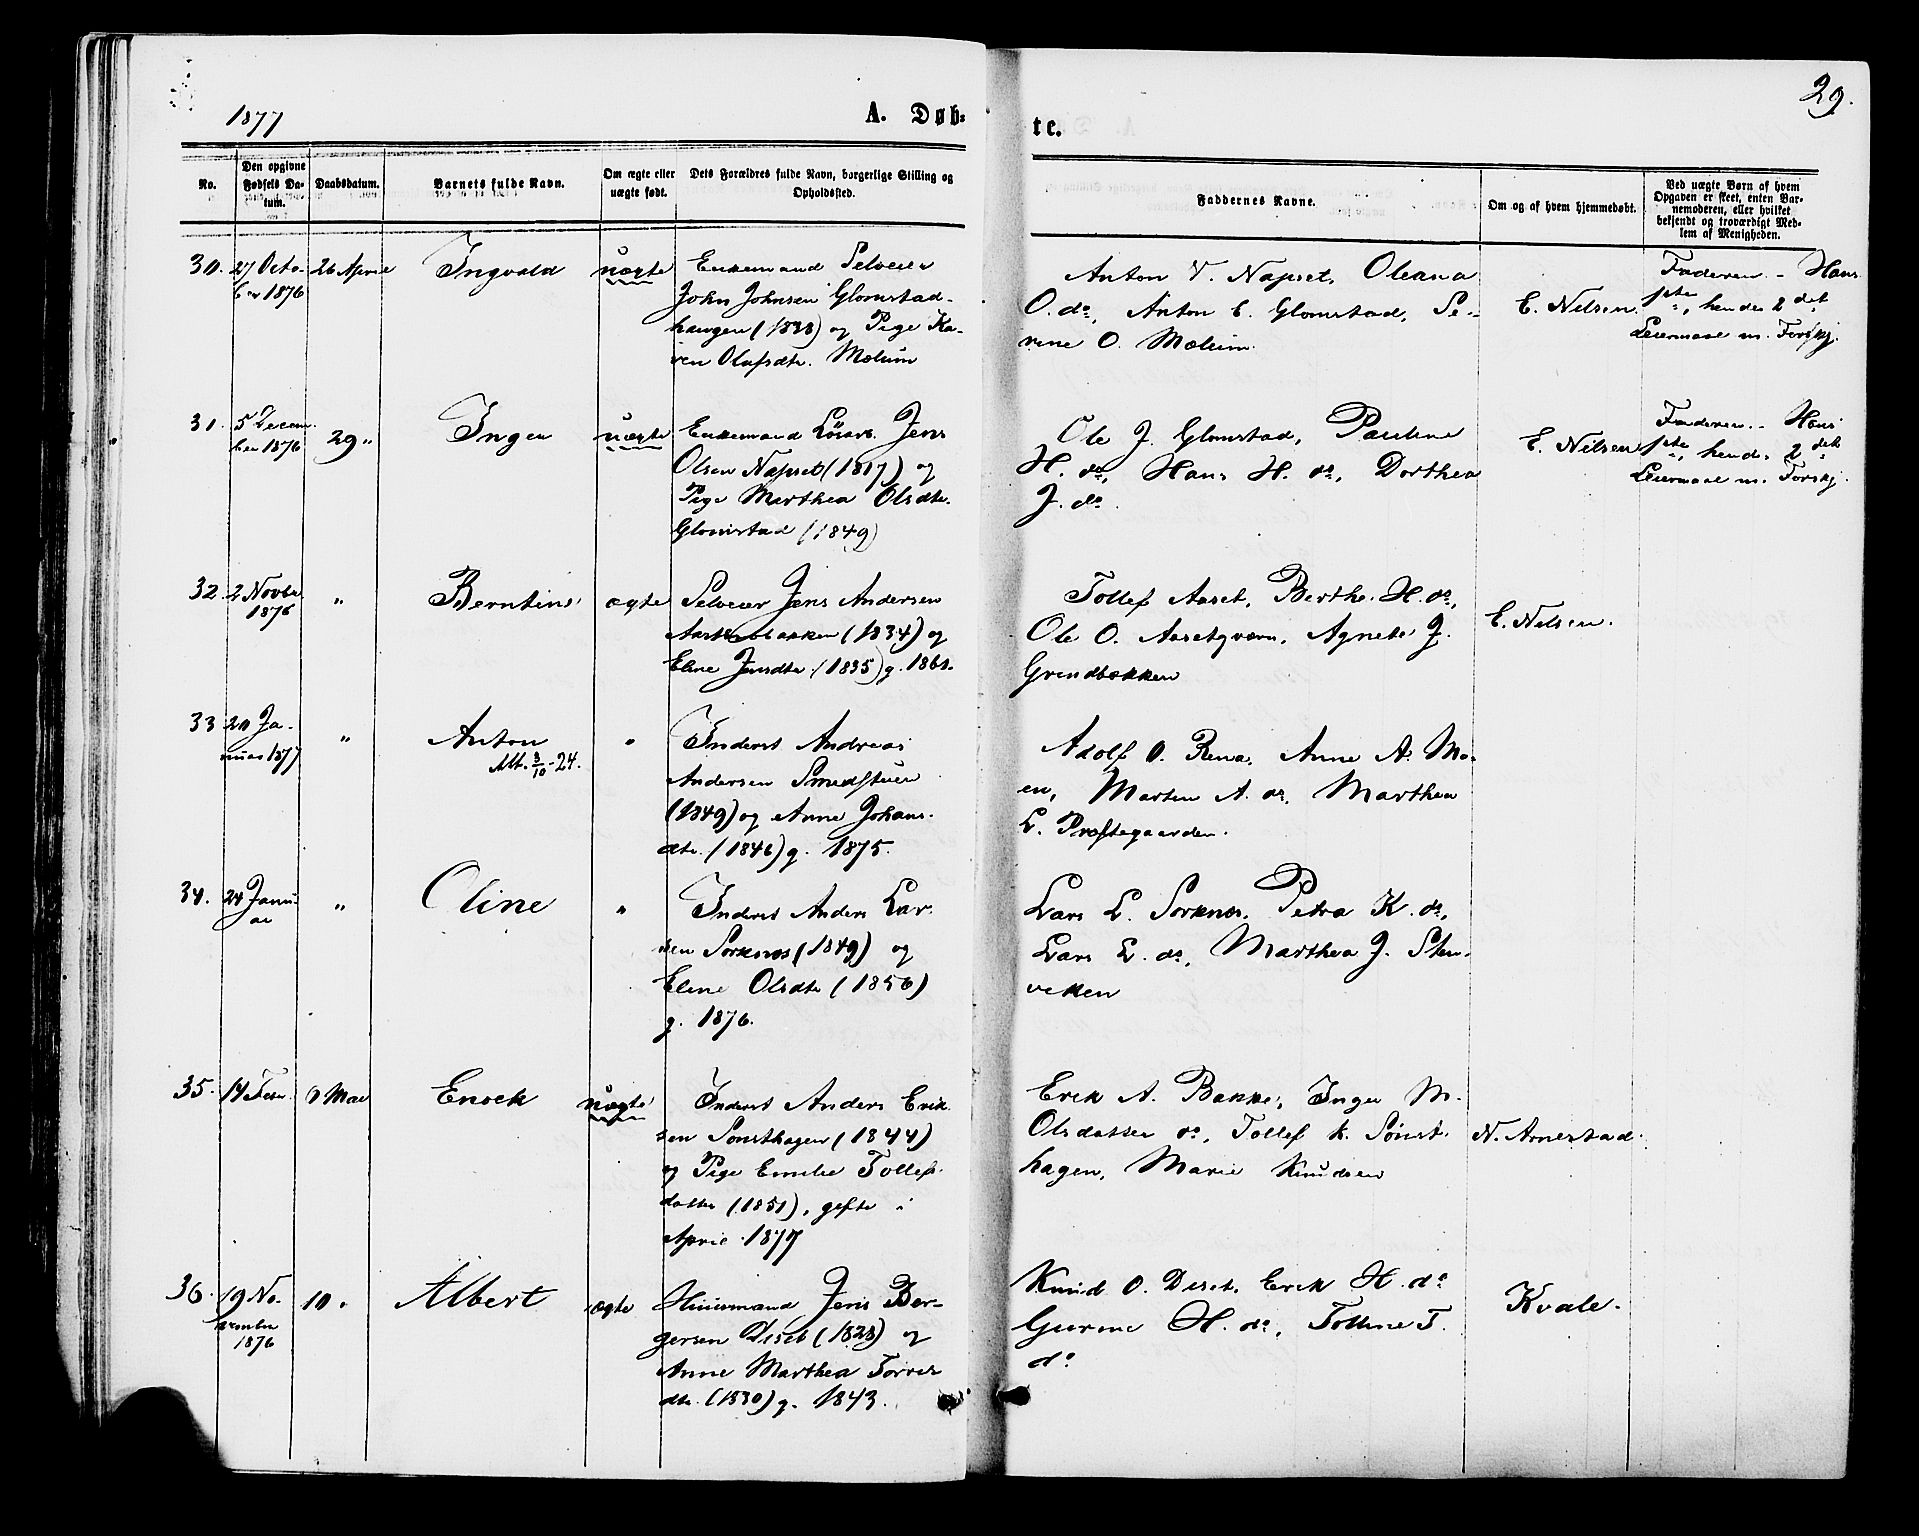 1877
A. Døb-
te.
29.
No.
Den opgivne Fødsels Da-
tum.
Daabsdatum.
Barnets fulde Navn.
Om ægte eller
uægte født.
Dets Forældres fulde Navn, borgerlige Stilling og
Opholdssted.
Faddernes Navne.
Om og af hvem hjemmedøbt.
Ved uægte Børn af hvem
Opgaven er skeet, enten Bar-
nemoderen, eller hvilket
bekjendt og troværdigt Med-
lem af Menigheden.
30. 27 Octo- 26 April Ingvald uægte Enkemand Selveier
ber 1876 John Johnsen Glomstad-
haugen (1838) og Pige Ka-
ren Olafsdtr. Mælum
Anton T. Napset, Oleana
O. do, Anton E. Glomstad, Se-
rine O. Mælum.
E. Nilsen.
Faderen - Hans
1ste, hendes 2det
Leiermaal m. Forskj.
31. 5 Decem- 29 " Inger uægte Enkemand Løsarb. Jens
ber 1876 Olsen Napset (1817) og
Pige Marthea Olsdtr.
Glomstad (1849)
Ole J. Glomstad, Pauline
H. do, Hans H. do, Dorthea
J. do.
E. Nilsen
Faderen - Hans
1ste, hendes 2det
Leiermaal m. Forskj.
32. 2 Novbr " Berntine ægte Selveier Jens Andersen
1876 (1834) og
Eline Jensdtr. (1835) g.
Tollef Aaset, Berthe H. do,
Ole O. Aasetqværn, Agnete J.
Grindbakken
E. Nilsen.
33 20 Ja- " Anton " Inderst Andreas
nuar 1877 Att. 3/10-24. Andersen Smedstuen
(1849) og Anne Johans-
dtr. (1846) g. 1875.
Adolf O. Rena, Anne A. Mo-
en, Morten A. do, Marthea
L. Præstegaarden.
34. 24 Janu- " Oline " Inderst Anders Lar-
ar sen Sorknes (1849) og
Eline Olsdtr (1856)
g. 1876.
Lars L. Sorknes, Petra K. do,
Lars L. do, Marthea J. Sten-
viken
35. 14 Febr. Mai Enock uægte Inderst Anders Erik-
sen Sønsthagen (1844)
og Pige Emilie Tollefs-
datter (1851), gifte i
April 1877
Erik A. Bakke, Inger M.
Olsdatter do, Tollef K. Sønst-
hagen, Marie Knudsen
N. Arnestad.
36. 19 No- 10 " Albert ægte Huusmand Jens Ber-
vember gersen Diset (1828) og
1876 Anne Marthea Torrer
dtr. (1830) g. 1843.
Knud O. Diset, Erik H. do
Gurine H. do, Tolline T.
do
Kvale.